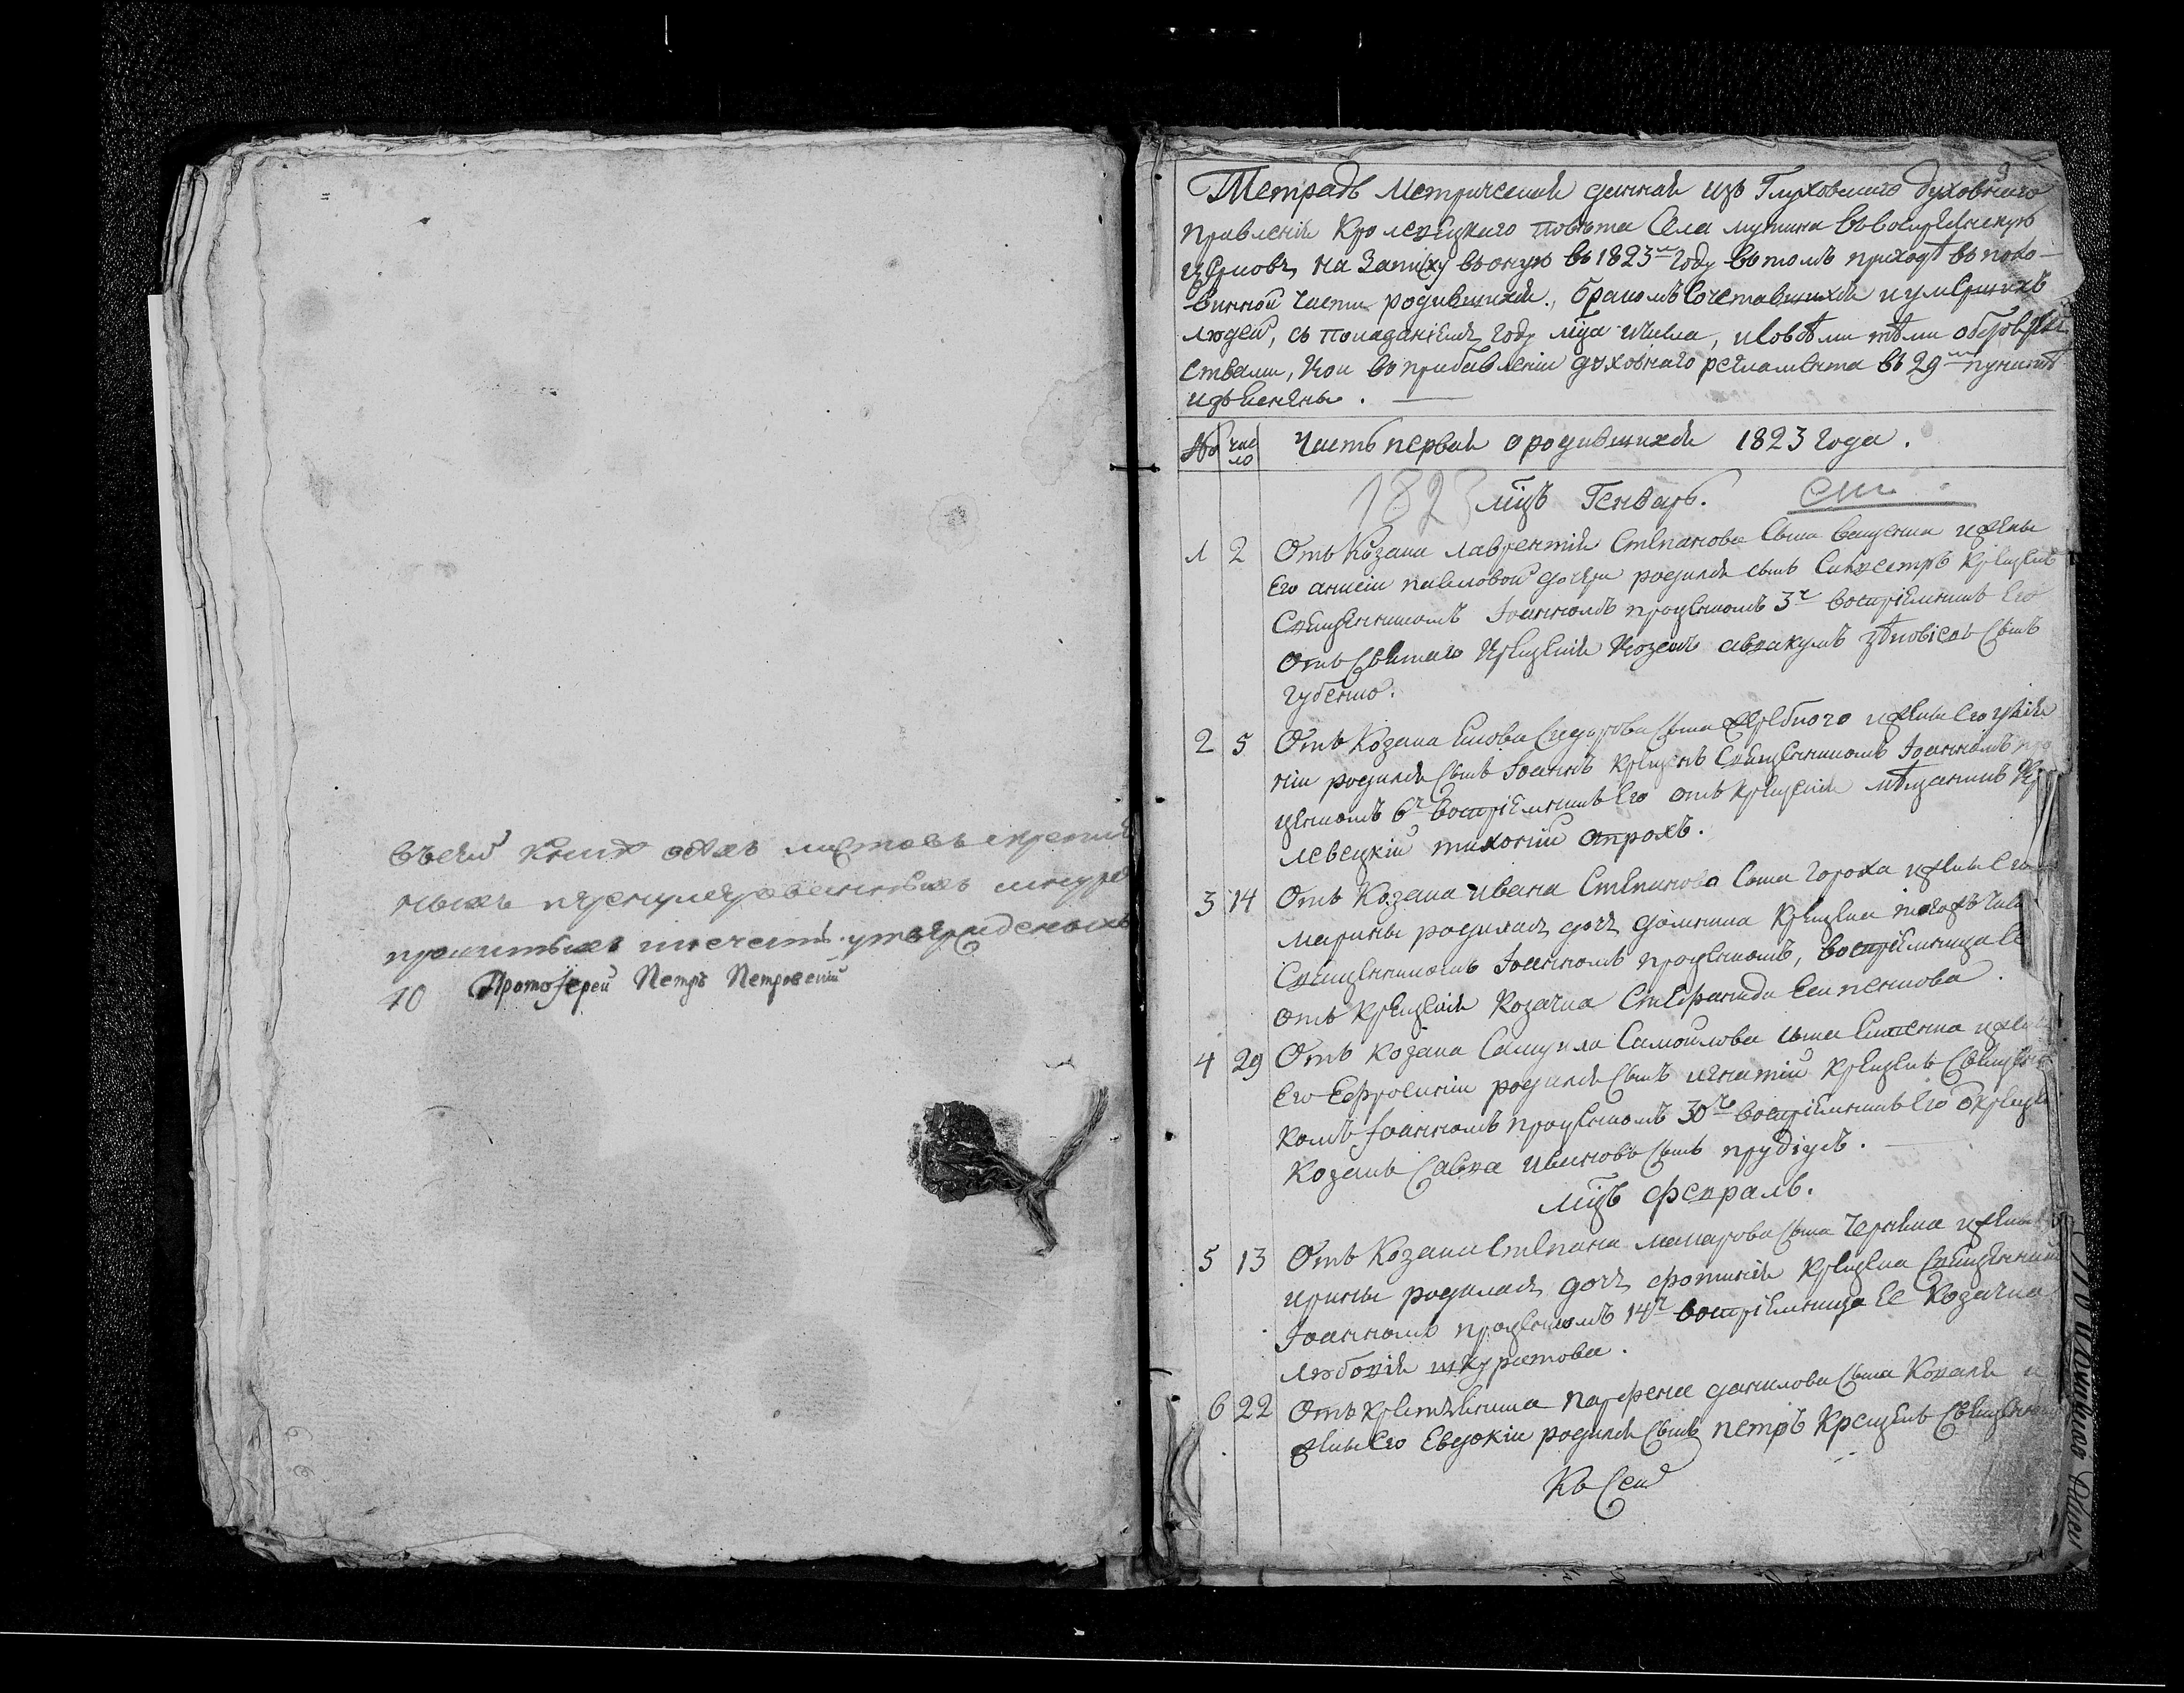 Въ сей книгѣ всѣхъ листовъ скрепле
ныхъ пренумерованныхъ шнуро
прошитыхъ печатью утвержденныхъ
10 Протоіерей Петръ Петровскій
Тетрадь Метрическая данная изъ Глуховского духовнаго
правленія Кролевецкаго повѣта Села мутина въ воскресенскую
церковь, на записку въ оную въ 1823м году въ томъ приходѣ въ поло-
винной части родившихся, бракомъ сочетавшихся и умершихъ
людей, съ показаніемъ году мца и числа, и со всѣми тѣми обстоятель
ствами, кои въ прибавленіи духовнаго регламента въ 29м пунктѣ
изъяснены.
№ чис
ло
Часть первая о родившихся 1823 года.
1823 мцъ Генварь.
1 2 Отъ Козака лаврентія Степанова сына ващенка и жены
Его анисіи павловой дочери родился сынъ Сильвестръ крещенъ
Священникомъ Іоанномъ проценкомъ 3г воспріемникъ Его
отъ святаго крещенія козакъ аввакумъ сынъ
губенко.
2 5 Отъ Козака Якова Сидорова сына жеребного и жены его
ніи родился сынъ Іоаннъ крещенъ Священникомъ Іоанномъ про
ценкомъ 6г воспріемникъ Его отъ крещенія мѣщанинъ Кро
левецкій тихоній отрохъ.
3 14 Отъ Козака Ивана Степанова сына Гороха и жены Его
марины родилась дочь домникія крещена того жъ числа
Священникомъ Іоанномъ проценкомъ, воспріемница Ее
отъ крещенія Козачка Стефанида Есипенкова.
4 29 Отъ Козака Самуила Самойлова сына и жены
Его Ефросиніи родился сынъ игнатій крещенъ Священни
комъ Іоанномъ проценкомъ 30го воспріемникъ Его отъ крещенія
Козакъ Савва Ивановъ сынъ прудіусъ.
мцъ февраль.
5 13 Отъ Козака Степана макарова сына Черняка и жены
ирины родилась дочь фотинія крещена Священникомъ
Іоанномъ проценкомъ 14г воспріемница Ее Козачка
любовія шкуратова.
6 22 Отъ крестьянина парфена данилова сына Коваля и
жены Его Евдокіи родился сынъ петръ крещенъ Священнико
Къ сей